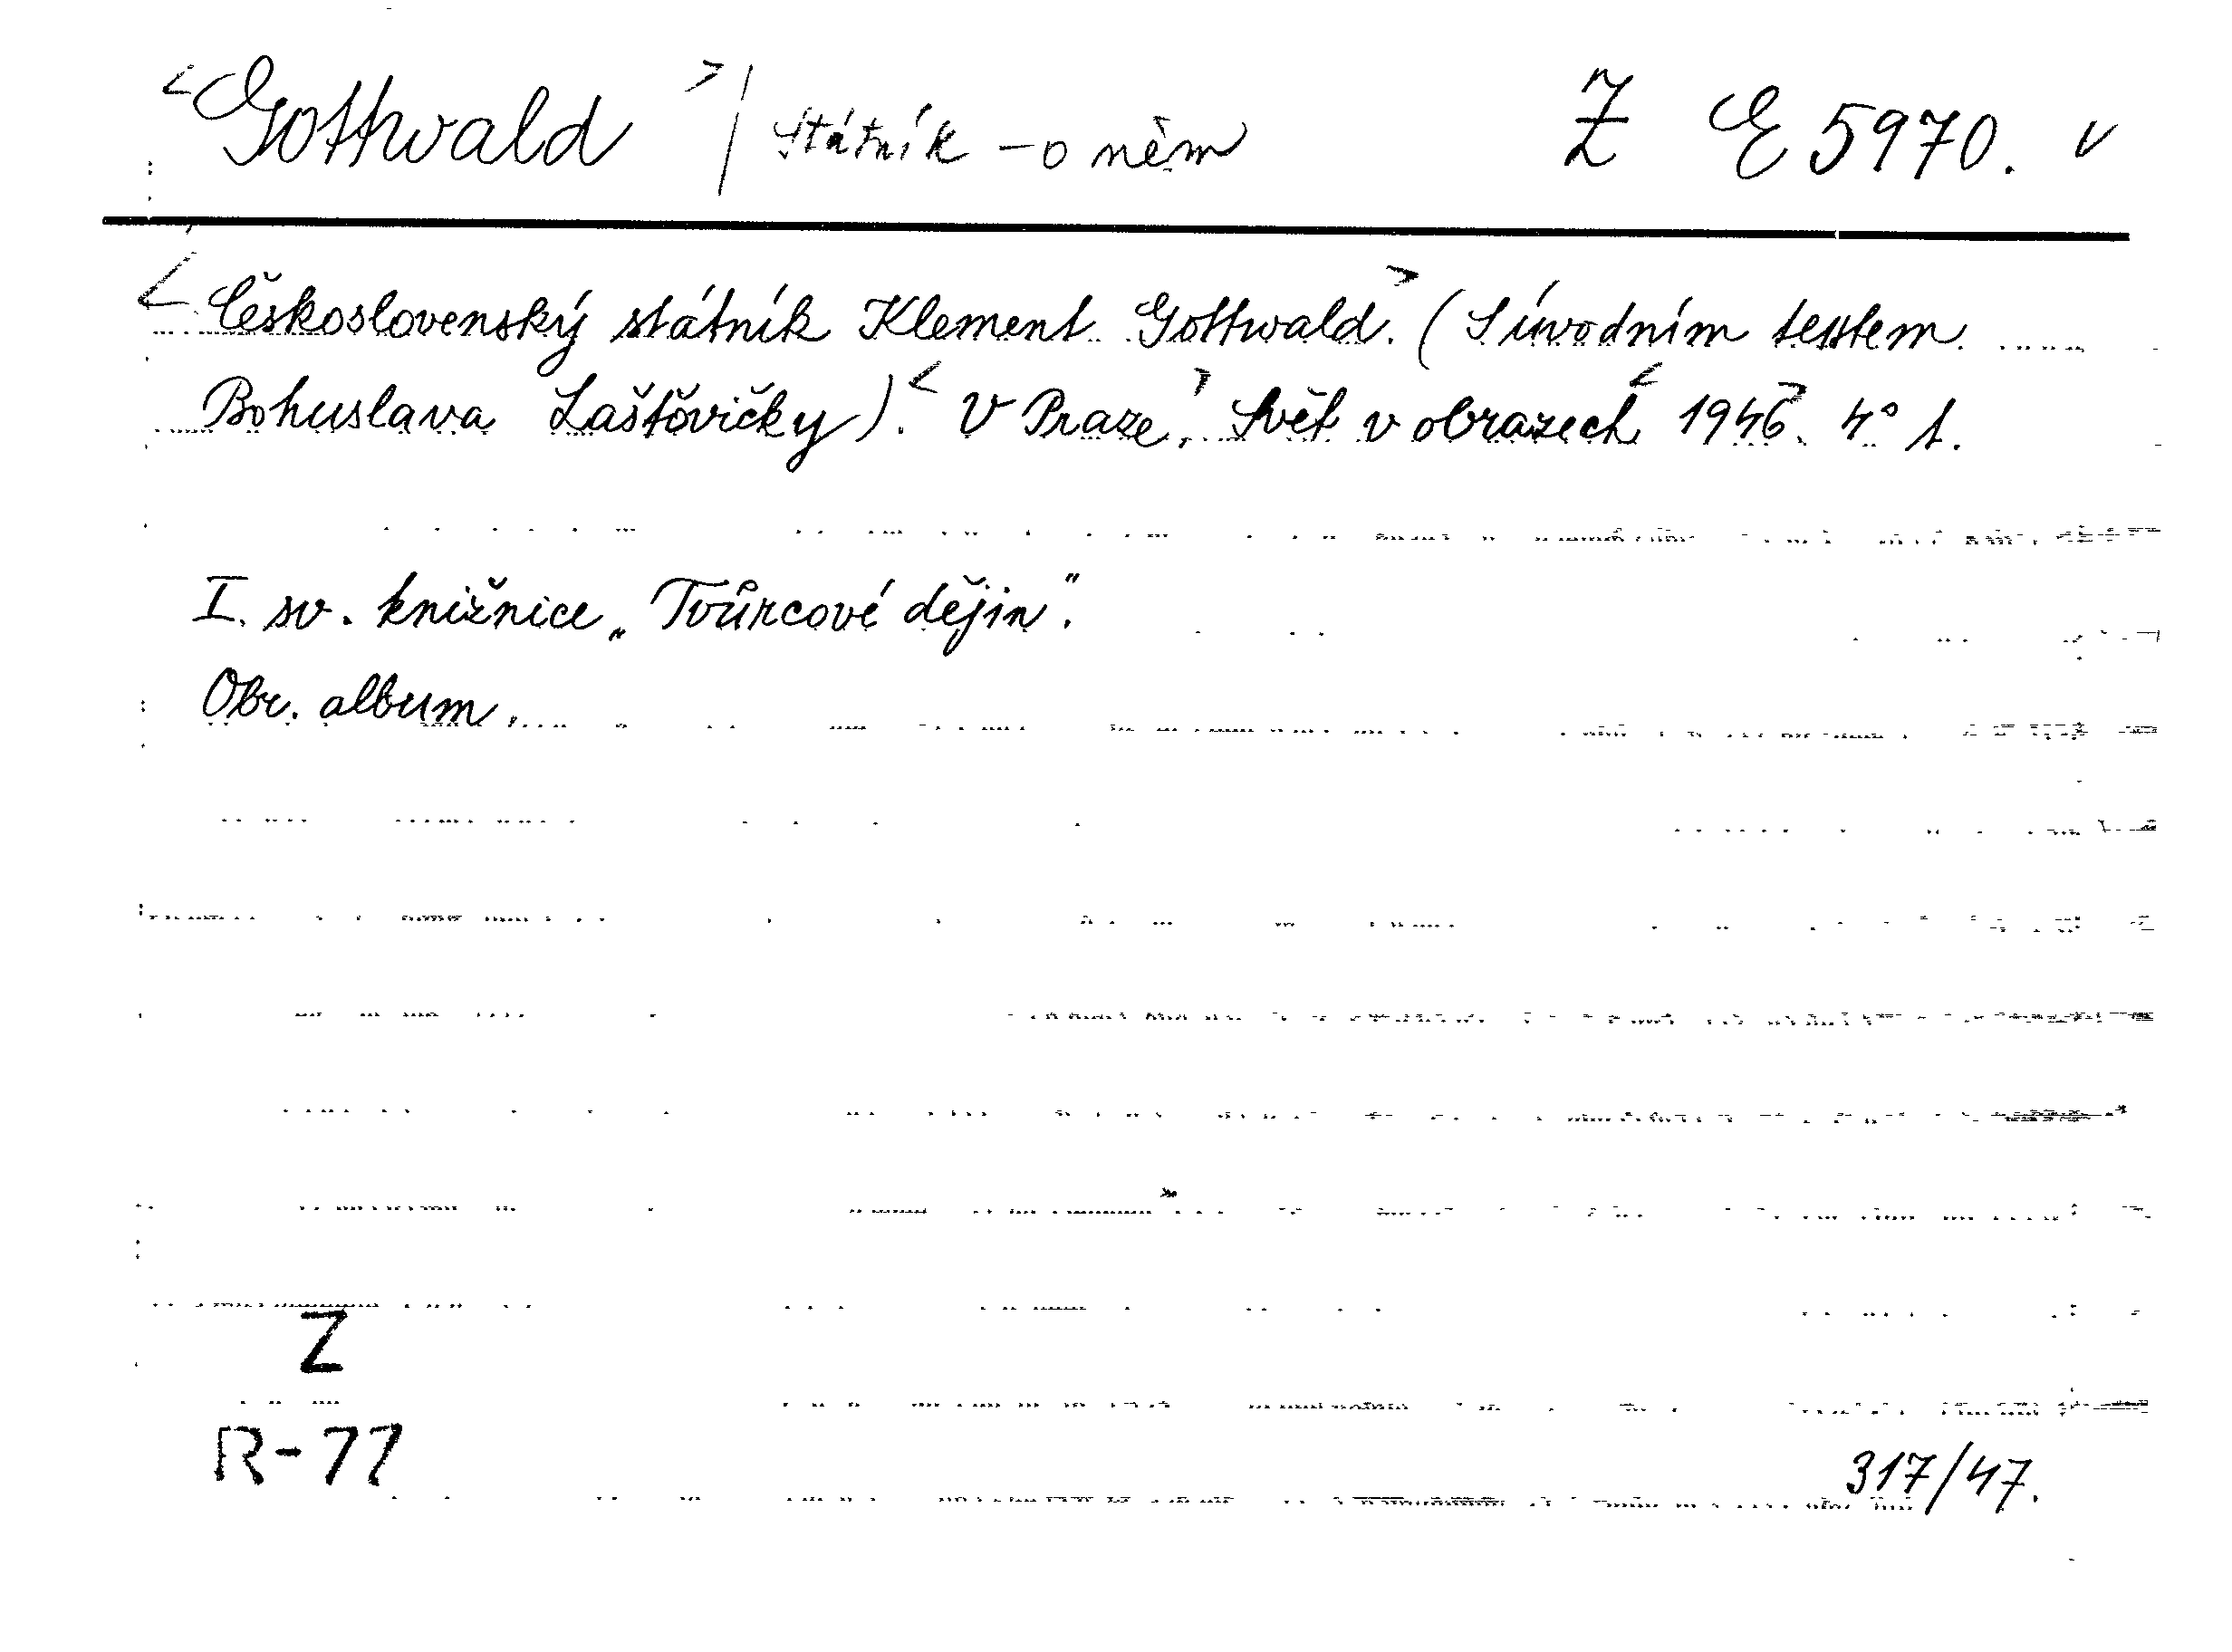 <Gottwald> | Státník - o něm Z E 5970. v
<Československý státník Klement Gottwald.> (S úvodním textem
Bohuslava Laštovičky).< V Praze,> Svět v obrazech< 1946>. 4° 1.
I. sv. knižnice „Tvůrcové dějin“.
Obr. album.
Z
R-77
317/47.